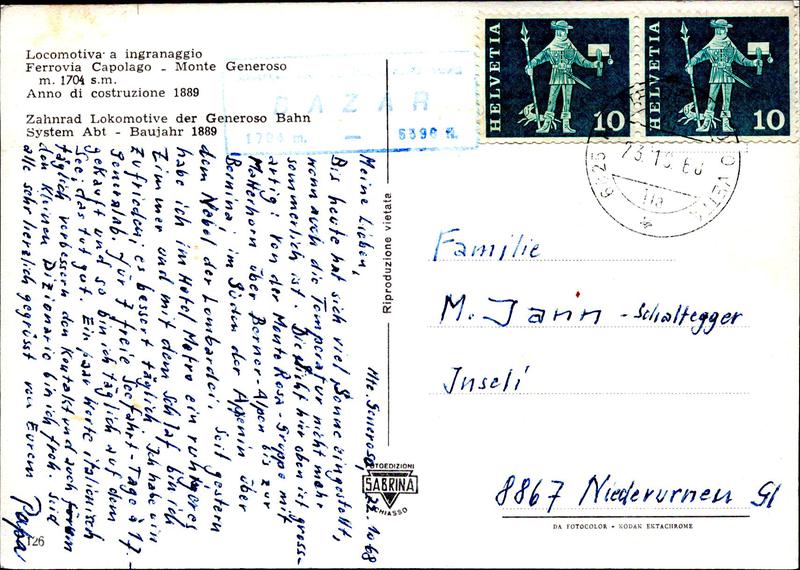 Locomotiva a ingranaggio
Ferrovia Capolago - Monte Generoso
m. 1704 s.m.
Anno di costruzione 1889
Zahnrad Lokomotive der Generoso Bahn
System Abt - Baujahr 1889
BAZAR
1704 m. — 5390 ft.
HELVETIA 10
HELVETIA 10
23.10.68
11a
Mte. Generoso, 22.10.68
Meine Lieben,
Bis heute hat sich viel Sonne eingestellt,
wenn auch die Temperatur nicht mehr
sommerlich ist. Die Sicht hier oben ist gross-
artig: von der Monte Rosa-Gruppe mit
Matterhorn über Berner-Alpen bis zur
Bernina; im Süden der Apenin über
dem Nebel der Lombardei. Seit gestern
habe ich im Hotel Metro ein ruhigeres
Zimmer und mit dem Schlaf bin ich
zufrieden; es bessert täglich. Ich habe ein
Generalab. für 7 freie Seefahrt-Tage à 17.-
gekauft und so bin ich täglich auf dem
See; das tut gut. Ein paar Worte italienisch
täglich verbessern den Kontakt und auch
den kleinen Dizionario bin ich froh. Seid
alle sehr herzlich gegrüsst von Eurem
Papa
126
Riproduzione vietata
FOTOEDIZIONI
SABRINA
CHIASSO
Familie
M. Jann - Schaltegger
Inseli
8867 Niederurnen Gl
DA FOTOCOLOR - KODAK EKTACHROME